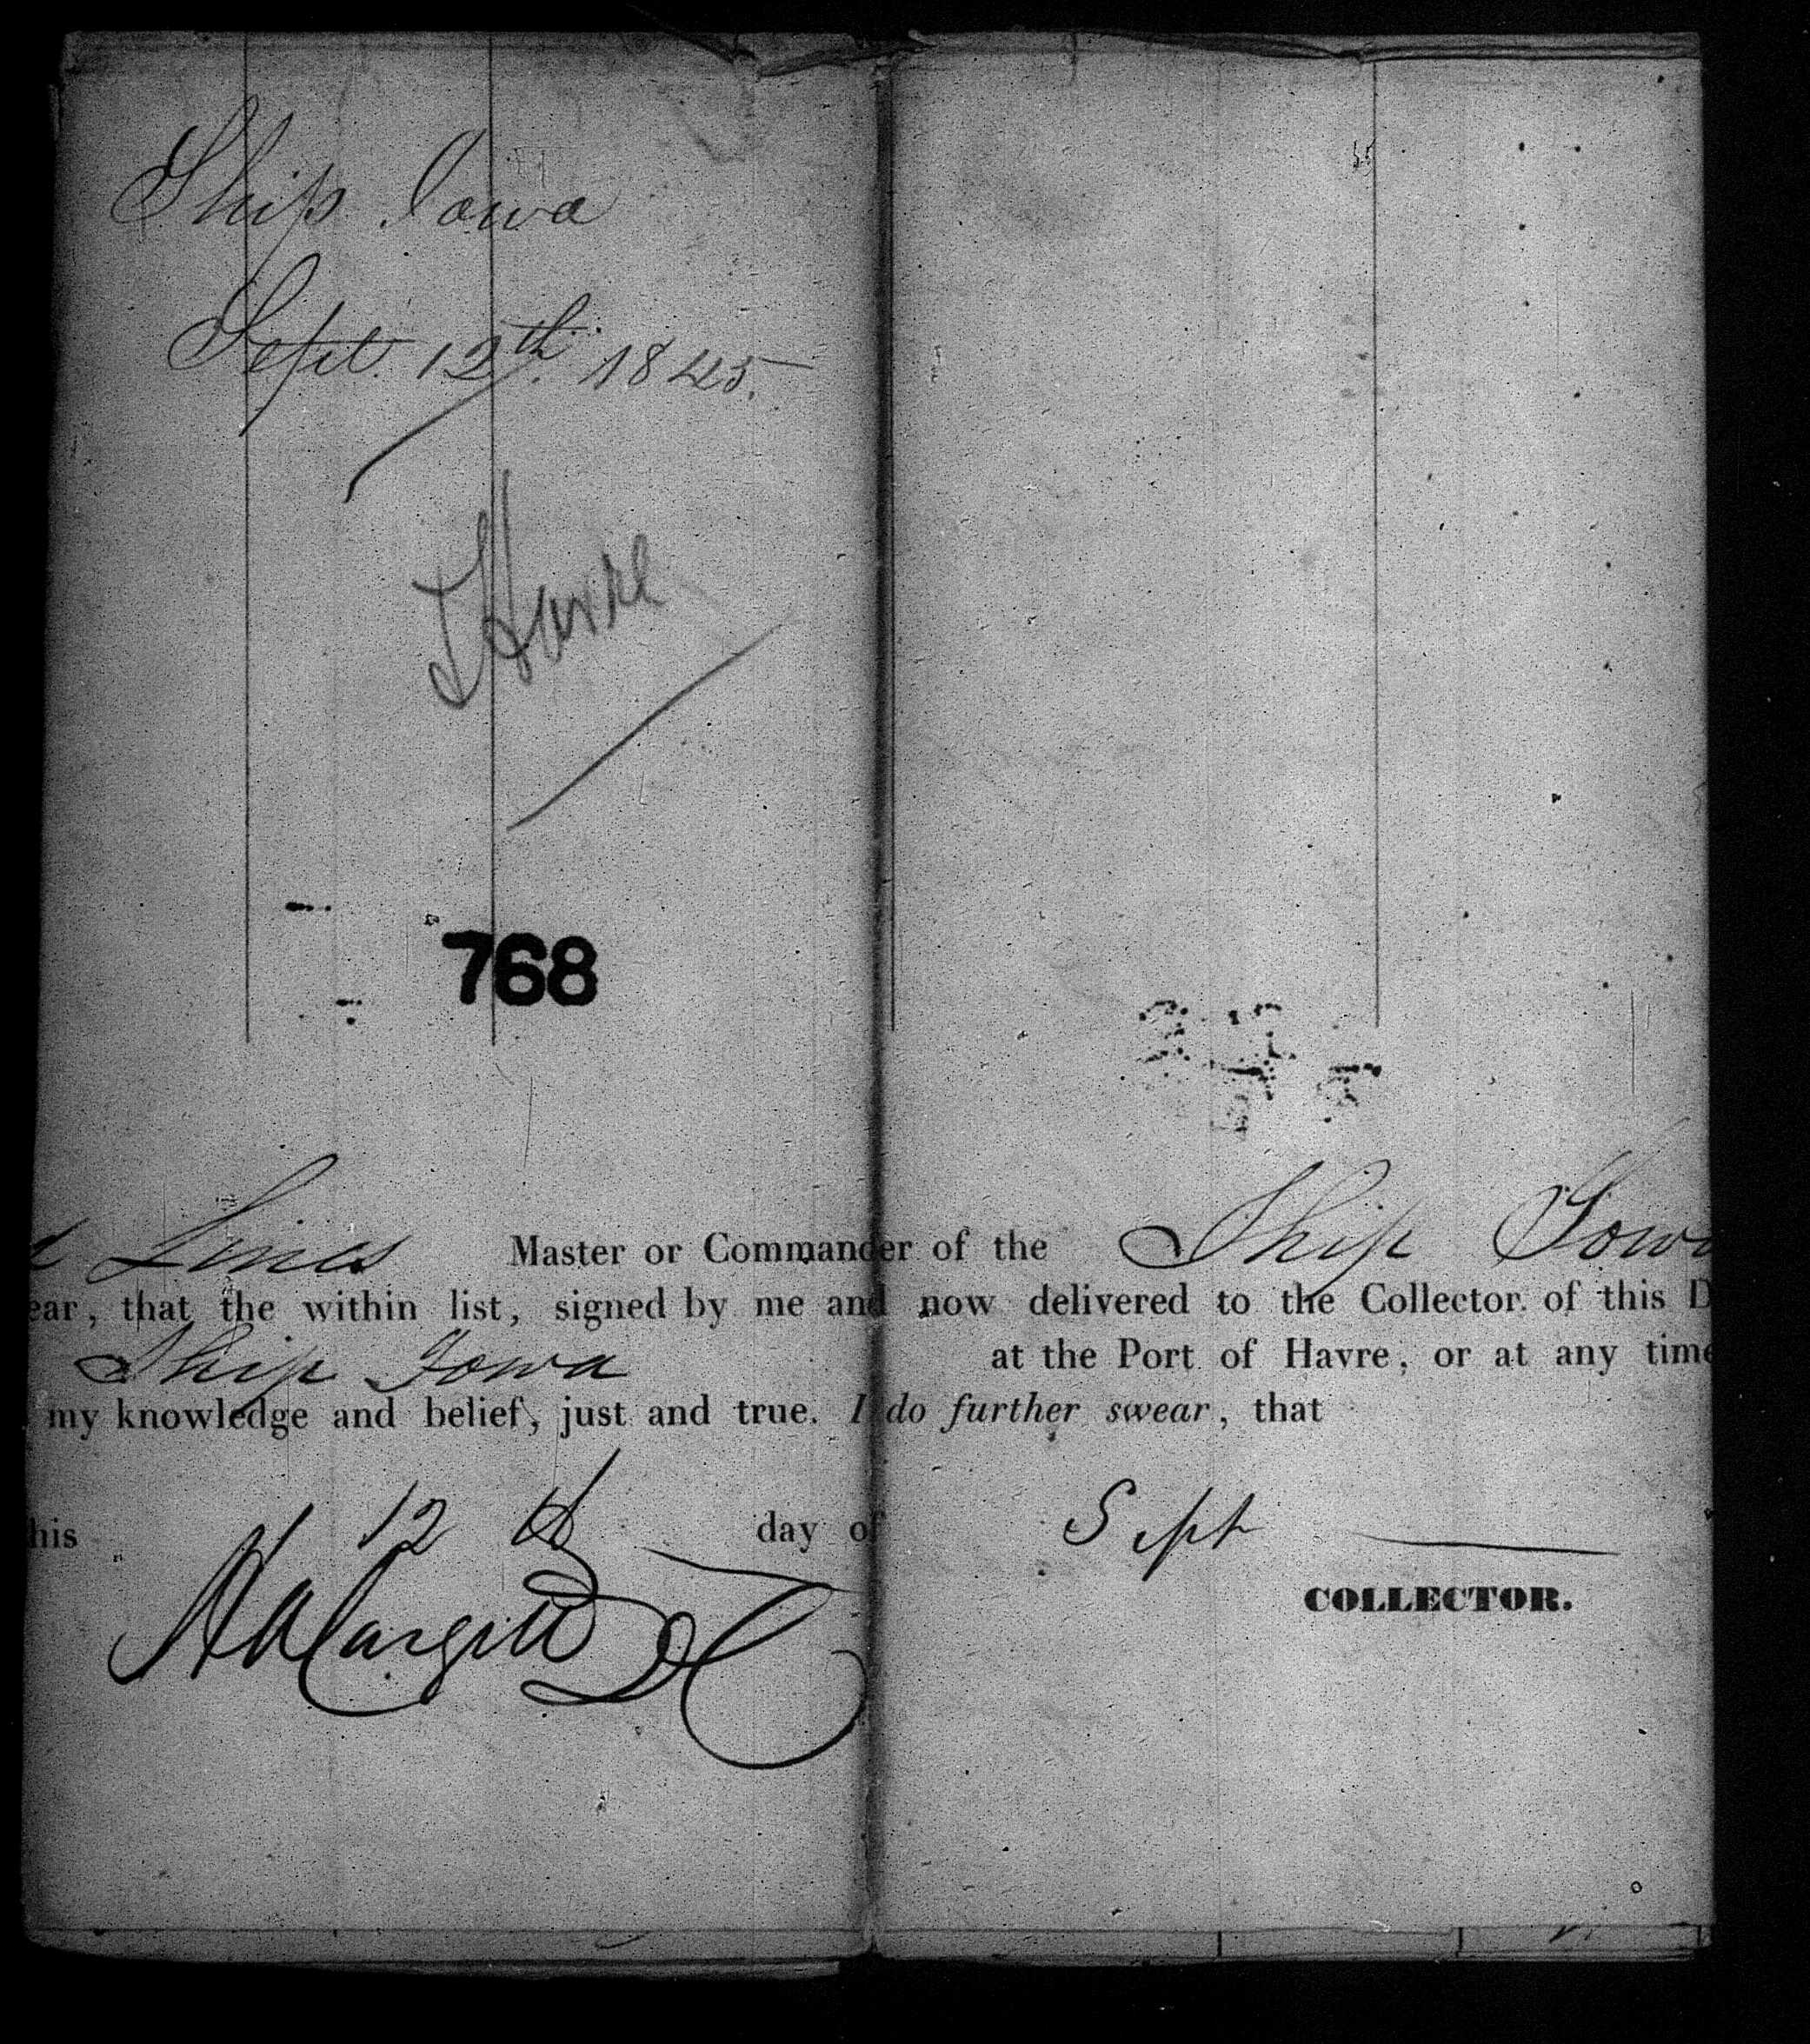 Ship Iowa
Sept. 12th. 1845.
Havre
768
Lines Master or Commander of the Ship Iowa
ear, that the within list, signed by me and now delivered to the Collector. of this D
Ship Iowa at the Port of Havre, or at any time
my knowledge and belief, just and true. I do further swear, that
his 12th day of Sept
COLLECTOR.
Cargill D C